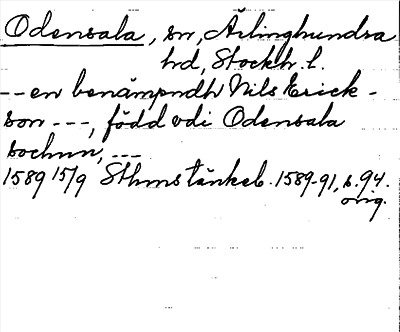 Odensala, sn, Ärlinghundra
hd, Stockh. l.
-- en benämpndh Nils Erick-
son ---, född vdi Odensala
sochnn, ---
1589 15/9 Sthms tänkeb. 1589-91, s. 94.
orig.